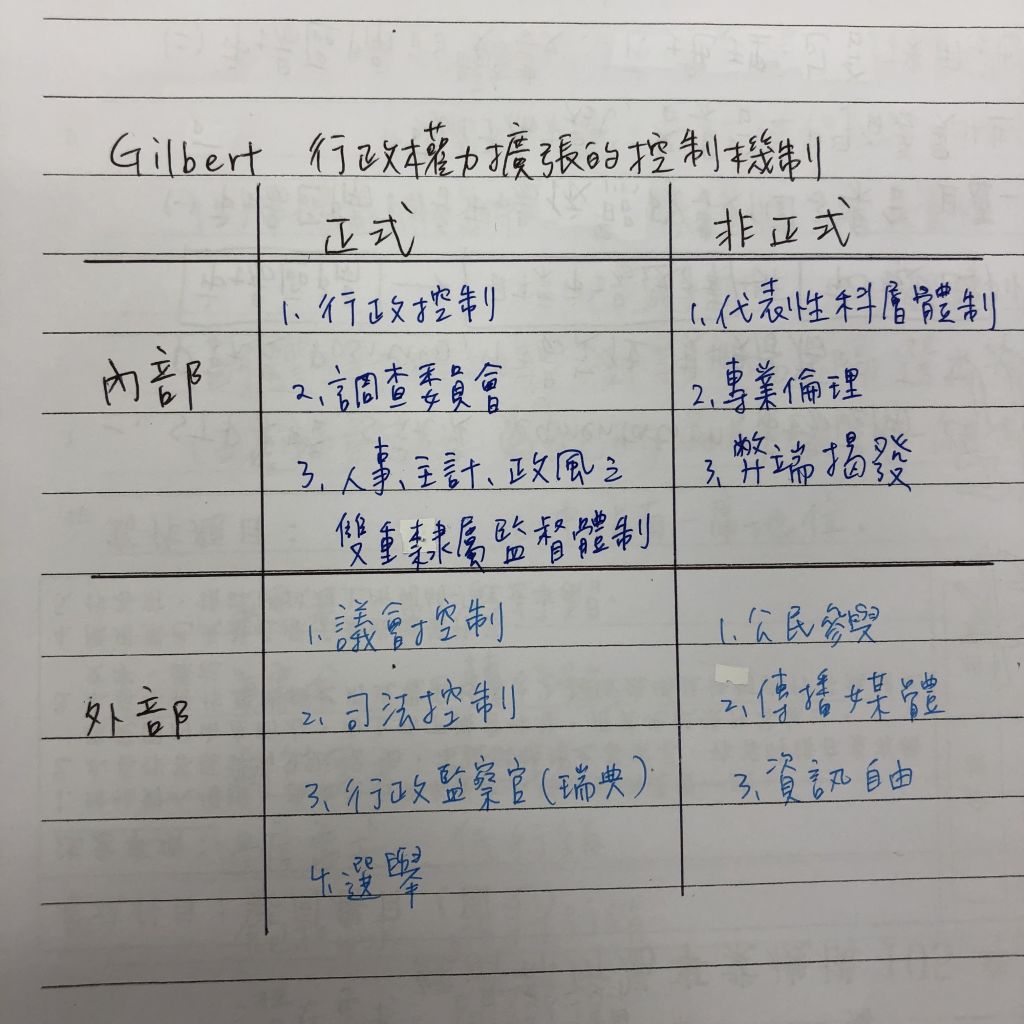 Gilbert 行政權力擴張的控制機制
正式 非正式
1. 行政控制 1. 代表性科層體制
內部 2. 調查委員會 2. 專業倫理
3. 人事、主計、政風之 3. 弊端揭發
雙重隸屬監督體制
1. 議會控制 1. 公民參與
外部 2. 司法控制 2. 傳播媒體
3. 行政監察官(瑞典) 3. 資訊自由
4. 選舉